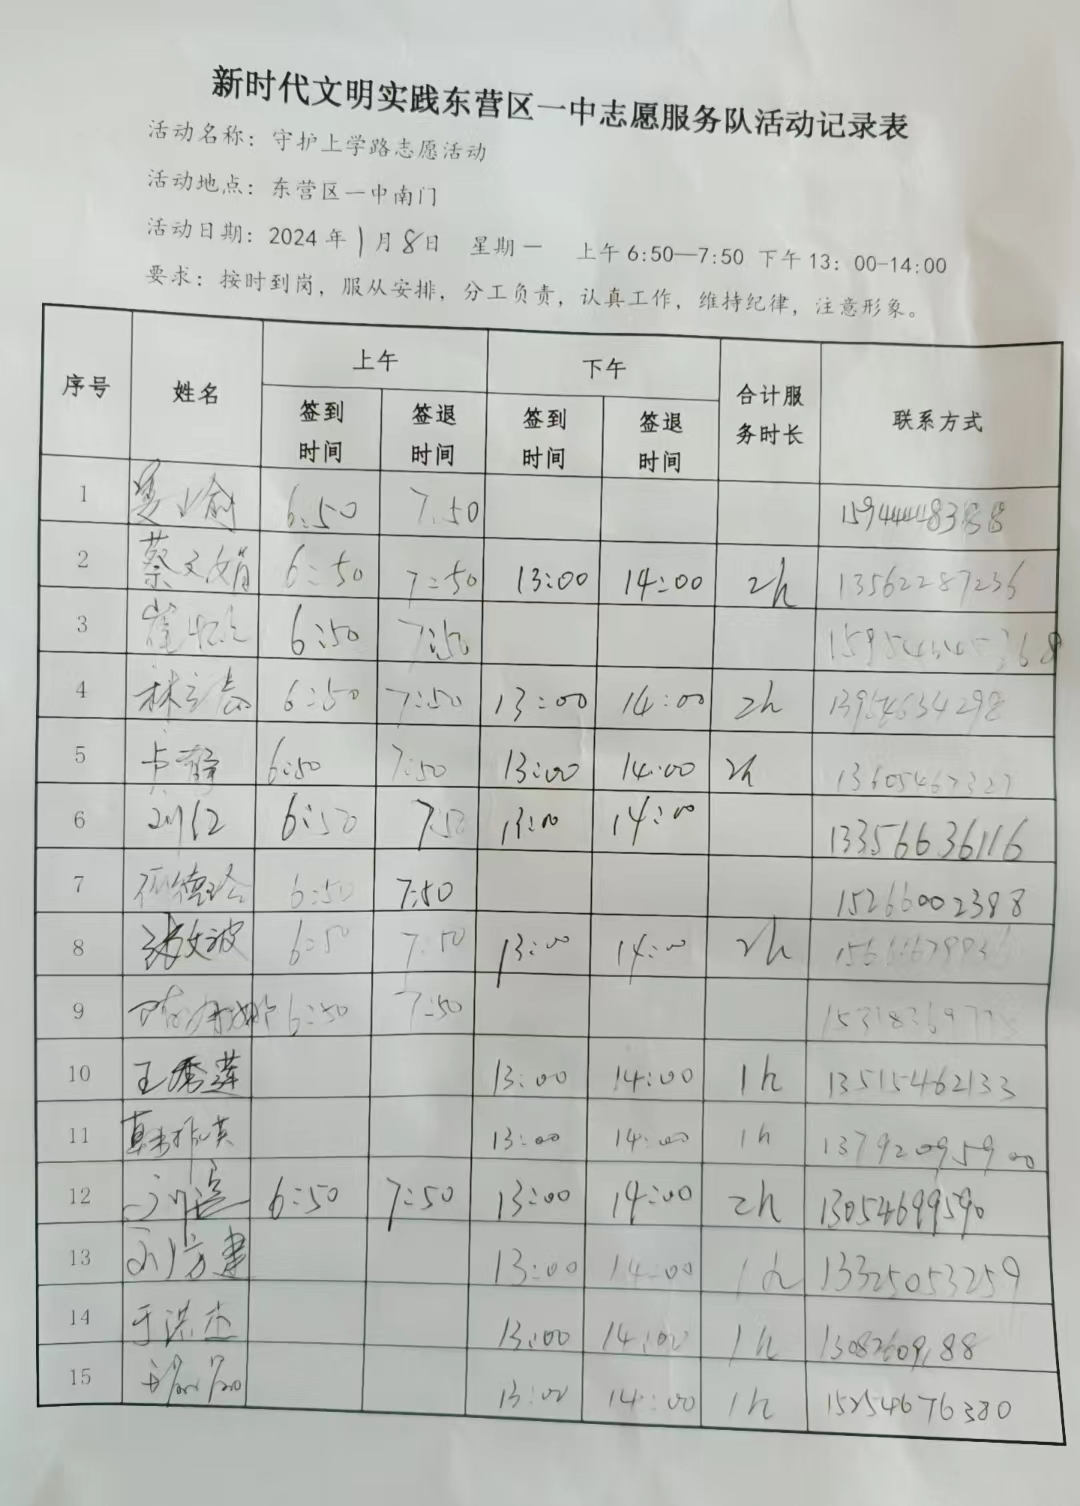 新时代文明实践东营区一中志愿服务队活动记录表
活动名称：守护上学路志愿活动
活动地点：东营区一中南门
活动日期：2024年1月8日 星期一 上午6:50—7:50 下午13：00-14:00
要求：按时到岗，服从安排，分工负责，认真工作，维持纪律，注意形象。
序号 姓名 上午 下午 合计服务时长 联系方式
签到时间 签退时间 签到时间 签退时间
1 6:50 7.50
2 蔡文娟 6:50 7:50 13:00 14:00 2h 13562287236
3 6:50 7:50
4 林立志 6:50 7:50 13:00 14:00 2h 13954634298
5 卢静 6:50 7:50 13:00 14:00 2h 13605467327
6 6:50 7:50 13:00 14:00 13356636116
7 6:50 7:50 15266002388
8 张文波 6:50 7:50 13:00 14:00 2h
9 6:50 7:50
10 王秀莲 13:00 14:00 1h 13515462133
11 13:00 14:00 1h 13792095900
12 6:50 7:50 13:00 14:00 2h 13054699590
13 刘方建 13:00 14:00 1h 13325053259
14 于洪杰 13:00 14:00 1h
15 13:00 14:00 1h 15254676380